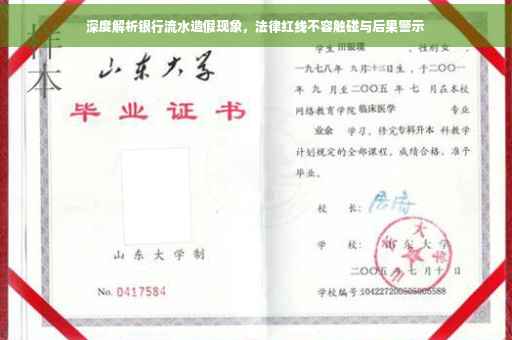 深度解析银行流水造假现象，法律红线不容触碰与后果警示
样本
山东大学
毕业证书
山东大学制
No. 0417584
学生 田 性别 女 ，
一九七八年 九月十三日生，于二〇〇一
年 九 月至二〇〇五 年 七 月在本校
网络教育学院 临床医学 专业
业余 学习，修完专科升本 科教学
计划规定的全部课程，成绩合格，准予
毕业。
校 长：
学 校： 山东大学
二〇〇五 年 七 月 十 日
学校编号: